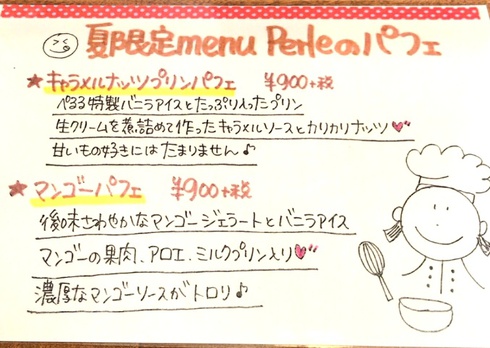 夏限定menu Perleのパフェ
★キャラメルナッツプリンパフェ ¥900+税
ぺるる特製バニラアイスとたっぷり入ったプリン
生クリームを煮詰めて作ったキャラメルソースとカリカリナッツ♥
甘いもの好きにはたまりません♪
★マンゴーパフェ ¥900+税
後味さわやかなマンゴージェラートとバニラアイス
マンゴーの果肉、アロエ、ミルクプリン入り♥
濃厚なマンゴーソースがトロリ♪